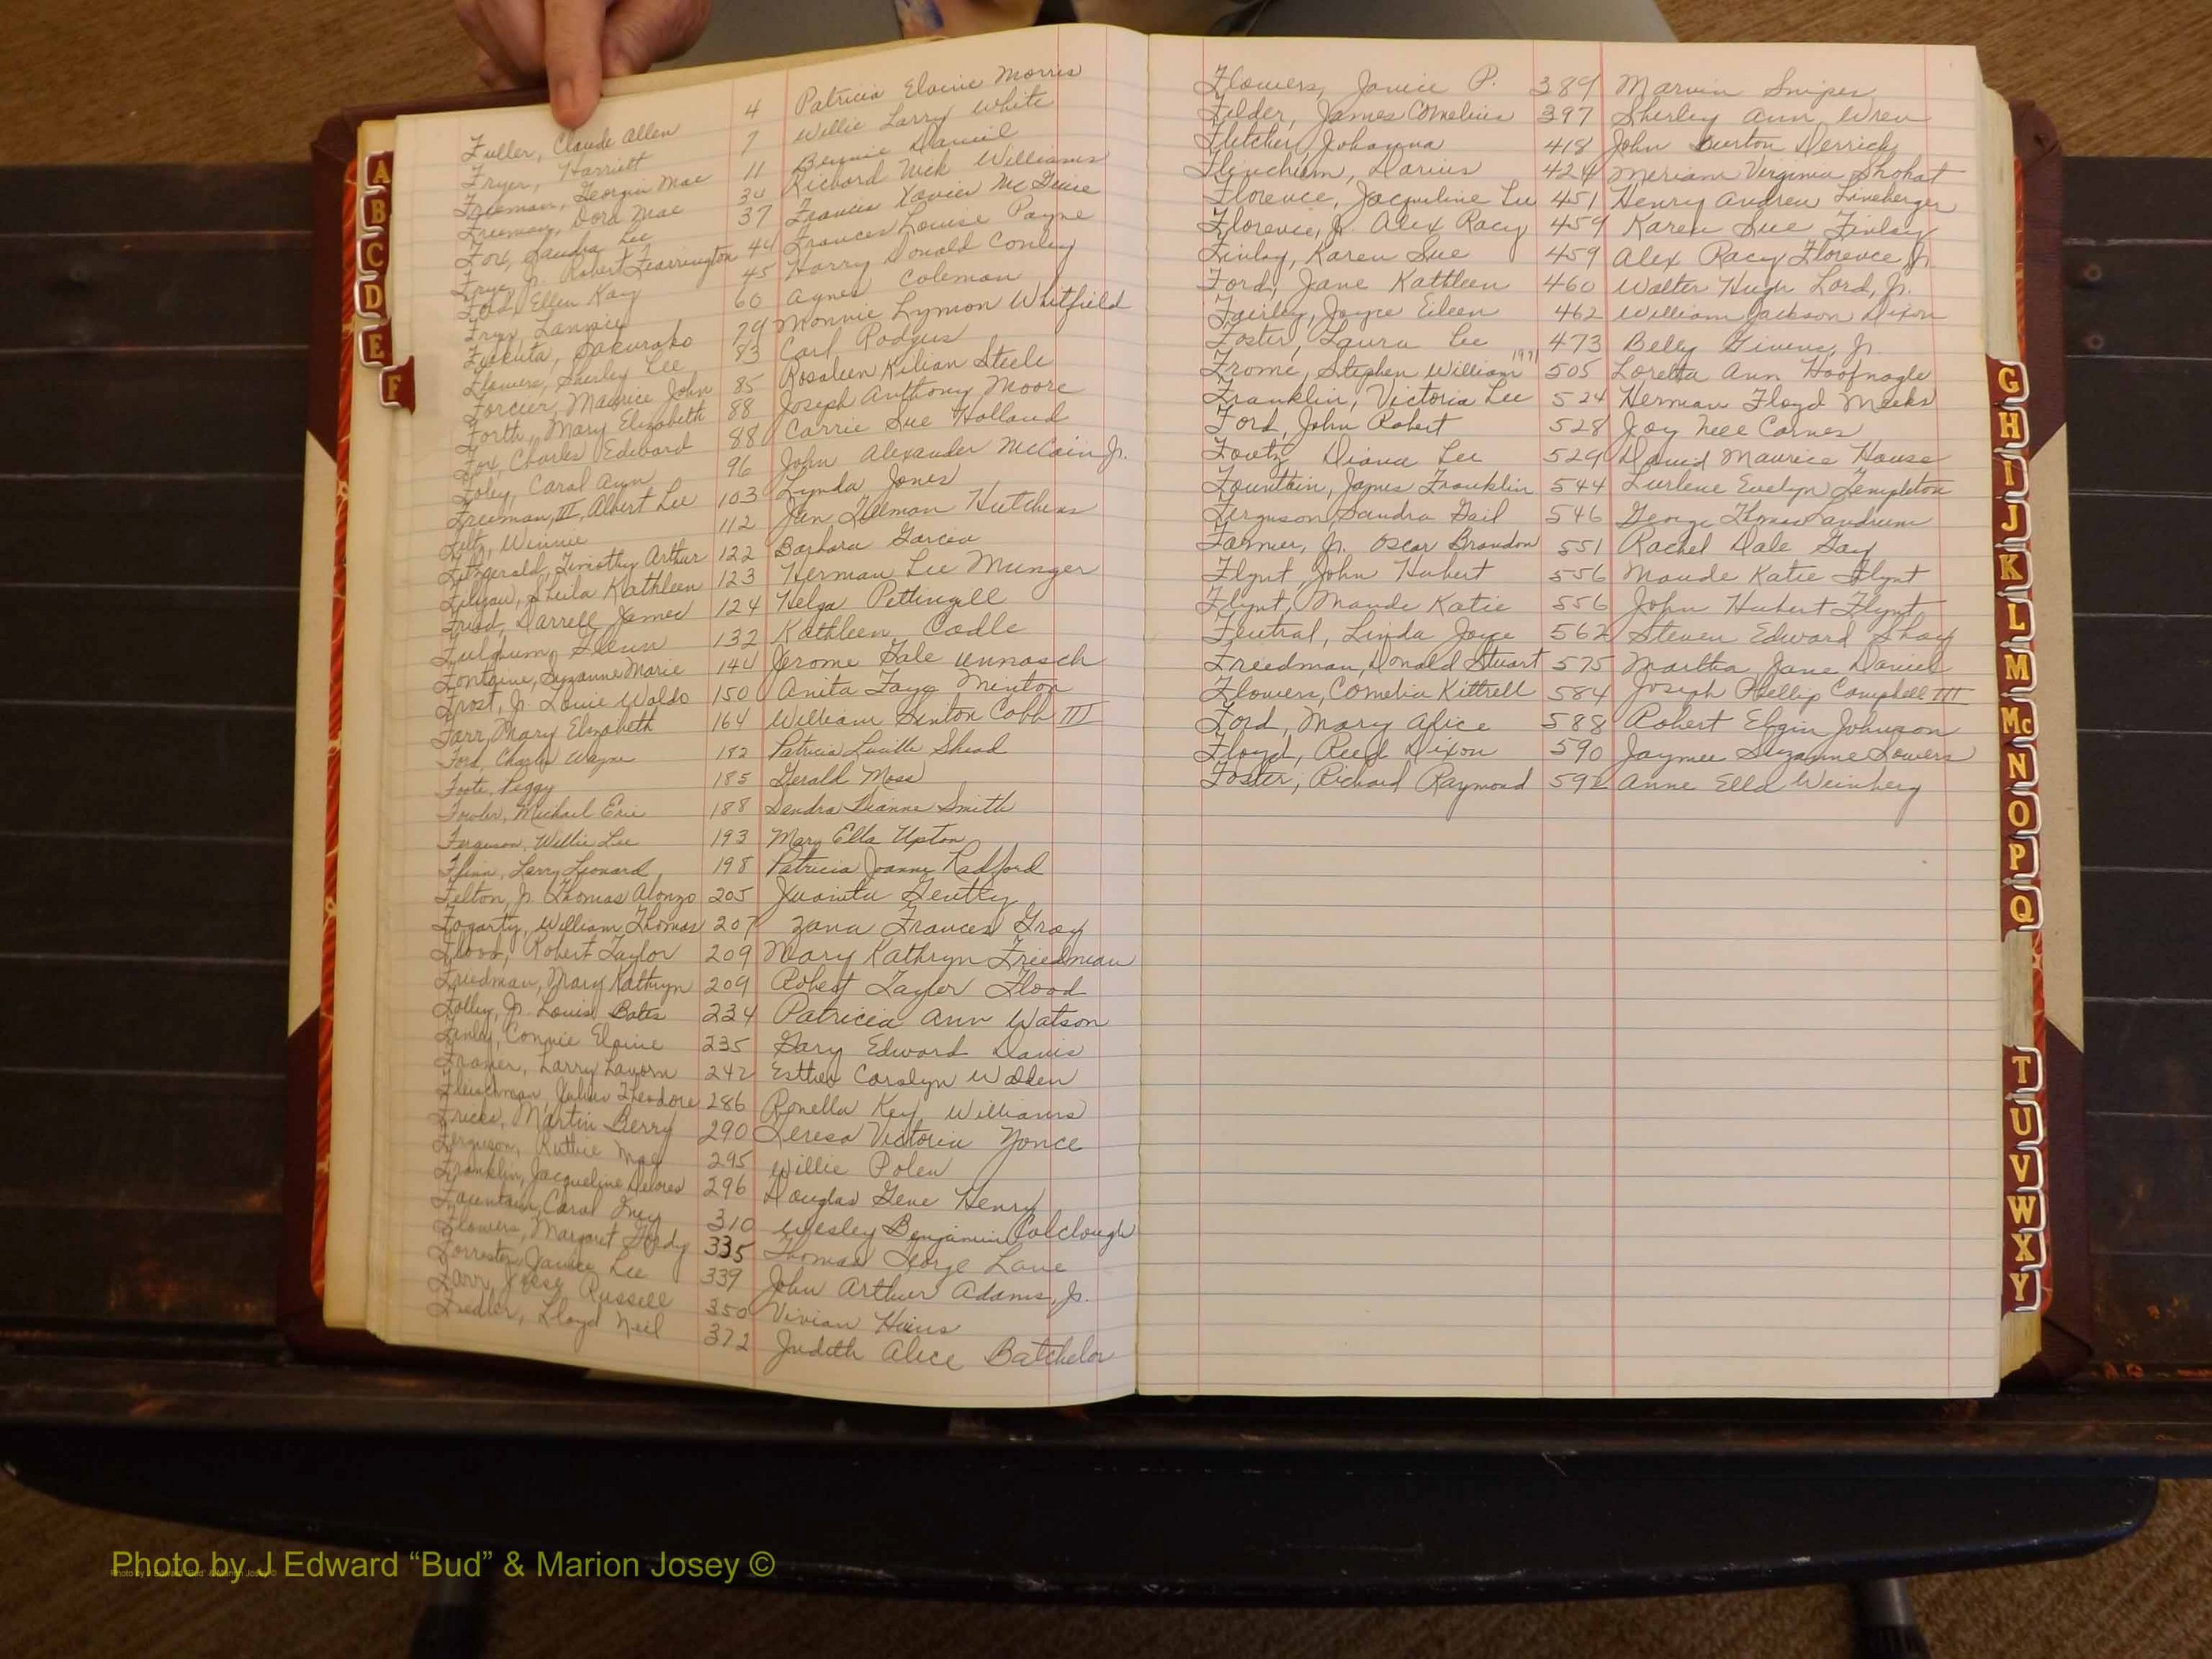 Fuller, Claude Allen 4 Patricia Elaine Morris
Fryer, Harriett 7 Willie Larry White
Freeman, Georgia Mae 11 Bennie Daniel
Freeman, Dora Mae 34 Richard Nick Williams
Fox, Sandra Lee 37 Francis Xavier McGuire
Frye, Jr. Robert Fearrington 44 Frances Louise Payne
Ford, Ellen Kay 45 Harry Donald Conley
Fryer, Lannie 60 Agnes Coleman
Fukuta, Sakurako 79 Monnie Lymon Whitfield
Flowers, Shirley Lee 83 Carl Rodgers
Forcier, Maurice John 85 Rosaleen Kilian Steele
Forth, Mary Elizabeth 88 Joseph Anthony Moore
Fox, Charles Edward 88 Carrie Sue Holland
Foley, Carol Ann 96 John Alexander McCain Jr.
Freeman, III, Albert Lee 103 Lynda Jones
Winnie 112 Jan Hutchens
Fitzgerald, Timothy Arthur 122 Barbara Garcia
Sheila Kathleen 123 Herman Lee Munger
Fried, Darrell James 124 Helga Pettingill
Fulghum, Glenn 132 Kathleen Cadle
Fontaine, Suzanne Marie 144 Jerome Gale Unnasch
Frost, Jr. Louie Waldo 150 Anita Faye Minton
Farr, Mary Elizabeth 164 William Linton Cobb III
Ford, Charles Wayne 182 Patricia Lucille Shead
Foote, Peggy 185 Gerald Moss
Fowler, Michael Eric 188 Sandra Dianne Smith
Ferguson, Willie Lee 193 Mary Ella Upton
Flinn, Larry Leonard 198 Patricia Joanne Radford
Felton, Jr. Thomas Alonzo 205 Juanita Gentry
Fogarty, William Thomas 207 Zana Frances Gray
Flood, Robert Taylor 209 Mary Kathryn Friedman
Friedman, Mary Kathryn 209 Robert Taylor Flood
Folley, Jr. Louis Bates 234 Patricia Ann Watson
Finley, Connie Elaine 235 Gary Edward Davis
Frazier, Larry Lavorn 242 Esther Carolyn Walden
Fleischman, Julius Theodore 286 Ronella Key Williams
Fricks, Martin Berry 290 Teresa Victoria Yonce
Ferguson, Ruthie Mae 295 Willie Polen
Franklin, Jacqueline Delores 296 Douglas Gene Henry
Fountain, Carol Inez 310 Wesley Benjamin Colclough
Flowers, Margaret 335 Thomas George Lane
Forrester, Janice Lee 339 John Arthur Adams, Jr.
Farr, Jesse Russell 350 Vivian Hains
Fiedler, Lloyd Neil 372 Judith Alice Batchelor
Flowers, Janice P. 389 Marvin Snipes
Filder, James Cornelius 397 Sherley Ann Wren
Fletcher, Johanna 418 John Burton Derrick
Flinchum, Darius 424 Meriam Virginia Shohat
Florence, Jacqueline Lee 451 Henry Andrew Lineberger
Florence, Jr. Alex Racy 459 Karen Sue Finlay
Finlay, Karen Sue 459 Alex Racy Florence Jr.
Ford, Jane Kathleen 460 Walter Hugh Lord, Jr.
Fairley, Joyce Eileen 462 William Jackson Dixon
Foster, Laura Lee 473 Belly Givens, Jr.
Frome, Stephen William 1971 505 Loretta Ann Hoofnagle
Franklin, Victoria Lee 524 Herman Floyd Meeks
Ford, John Robert 528 Joy Nell Carnes
Foutz, Diana Lee 529 David Maurice House
Fountain, James Franklin 544 Lurlene Evelyn Templeton
Ferguson, Sandra Gail 546 George Thomas Landrum
Farmer, Jr. Oscar Brandon 551 Rachel Dale Gay
Flynt, John Hubert 556 Maude Katie Flynt
Flynt, Maude Katie 556 John Hubert Flynt
Feutral, Linda Joyce 562 Steven Edward Shay
Freedman, Donald Stuart 575 Martha Jane Daniel
Flowers, Cornelia Kittrell 584 Joseph Phillip Campbell III
Ford, Mary Alice 588 Robert Elgin Johnson
Floyd, Reed Dixon 590 Jaymee Suzanne Sowers
Foster, Richard Raymond 592 Anne Ella Weinberg
A
B
C
D
E
F
G
H
I
J
K
L
M
Mc
N
O
P
Q
T
U
V
W
X
Y
Photo by J Edward “Bud” & Marion Josey ©
Photo by J Edward “Bud” & Marion Josey ©